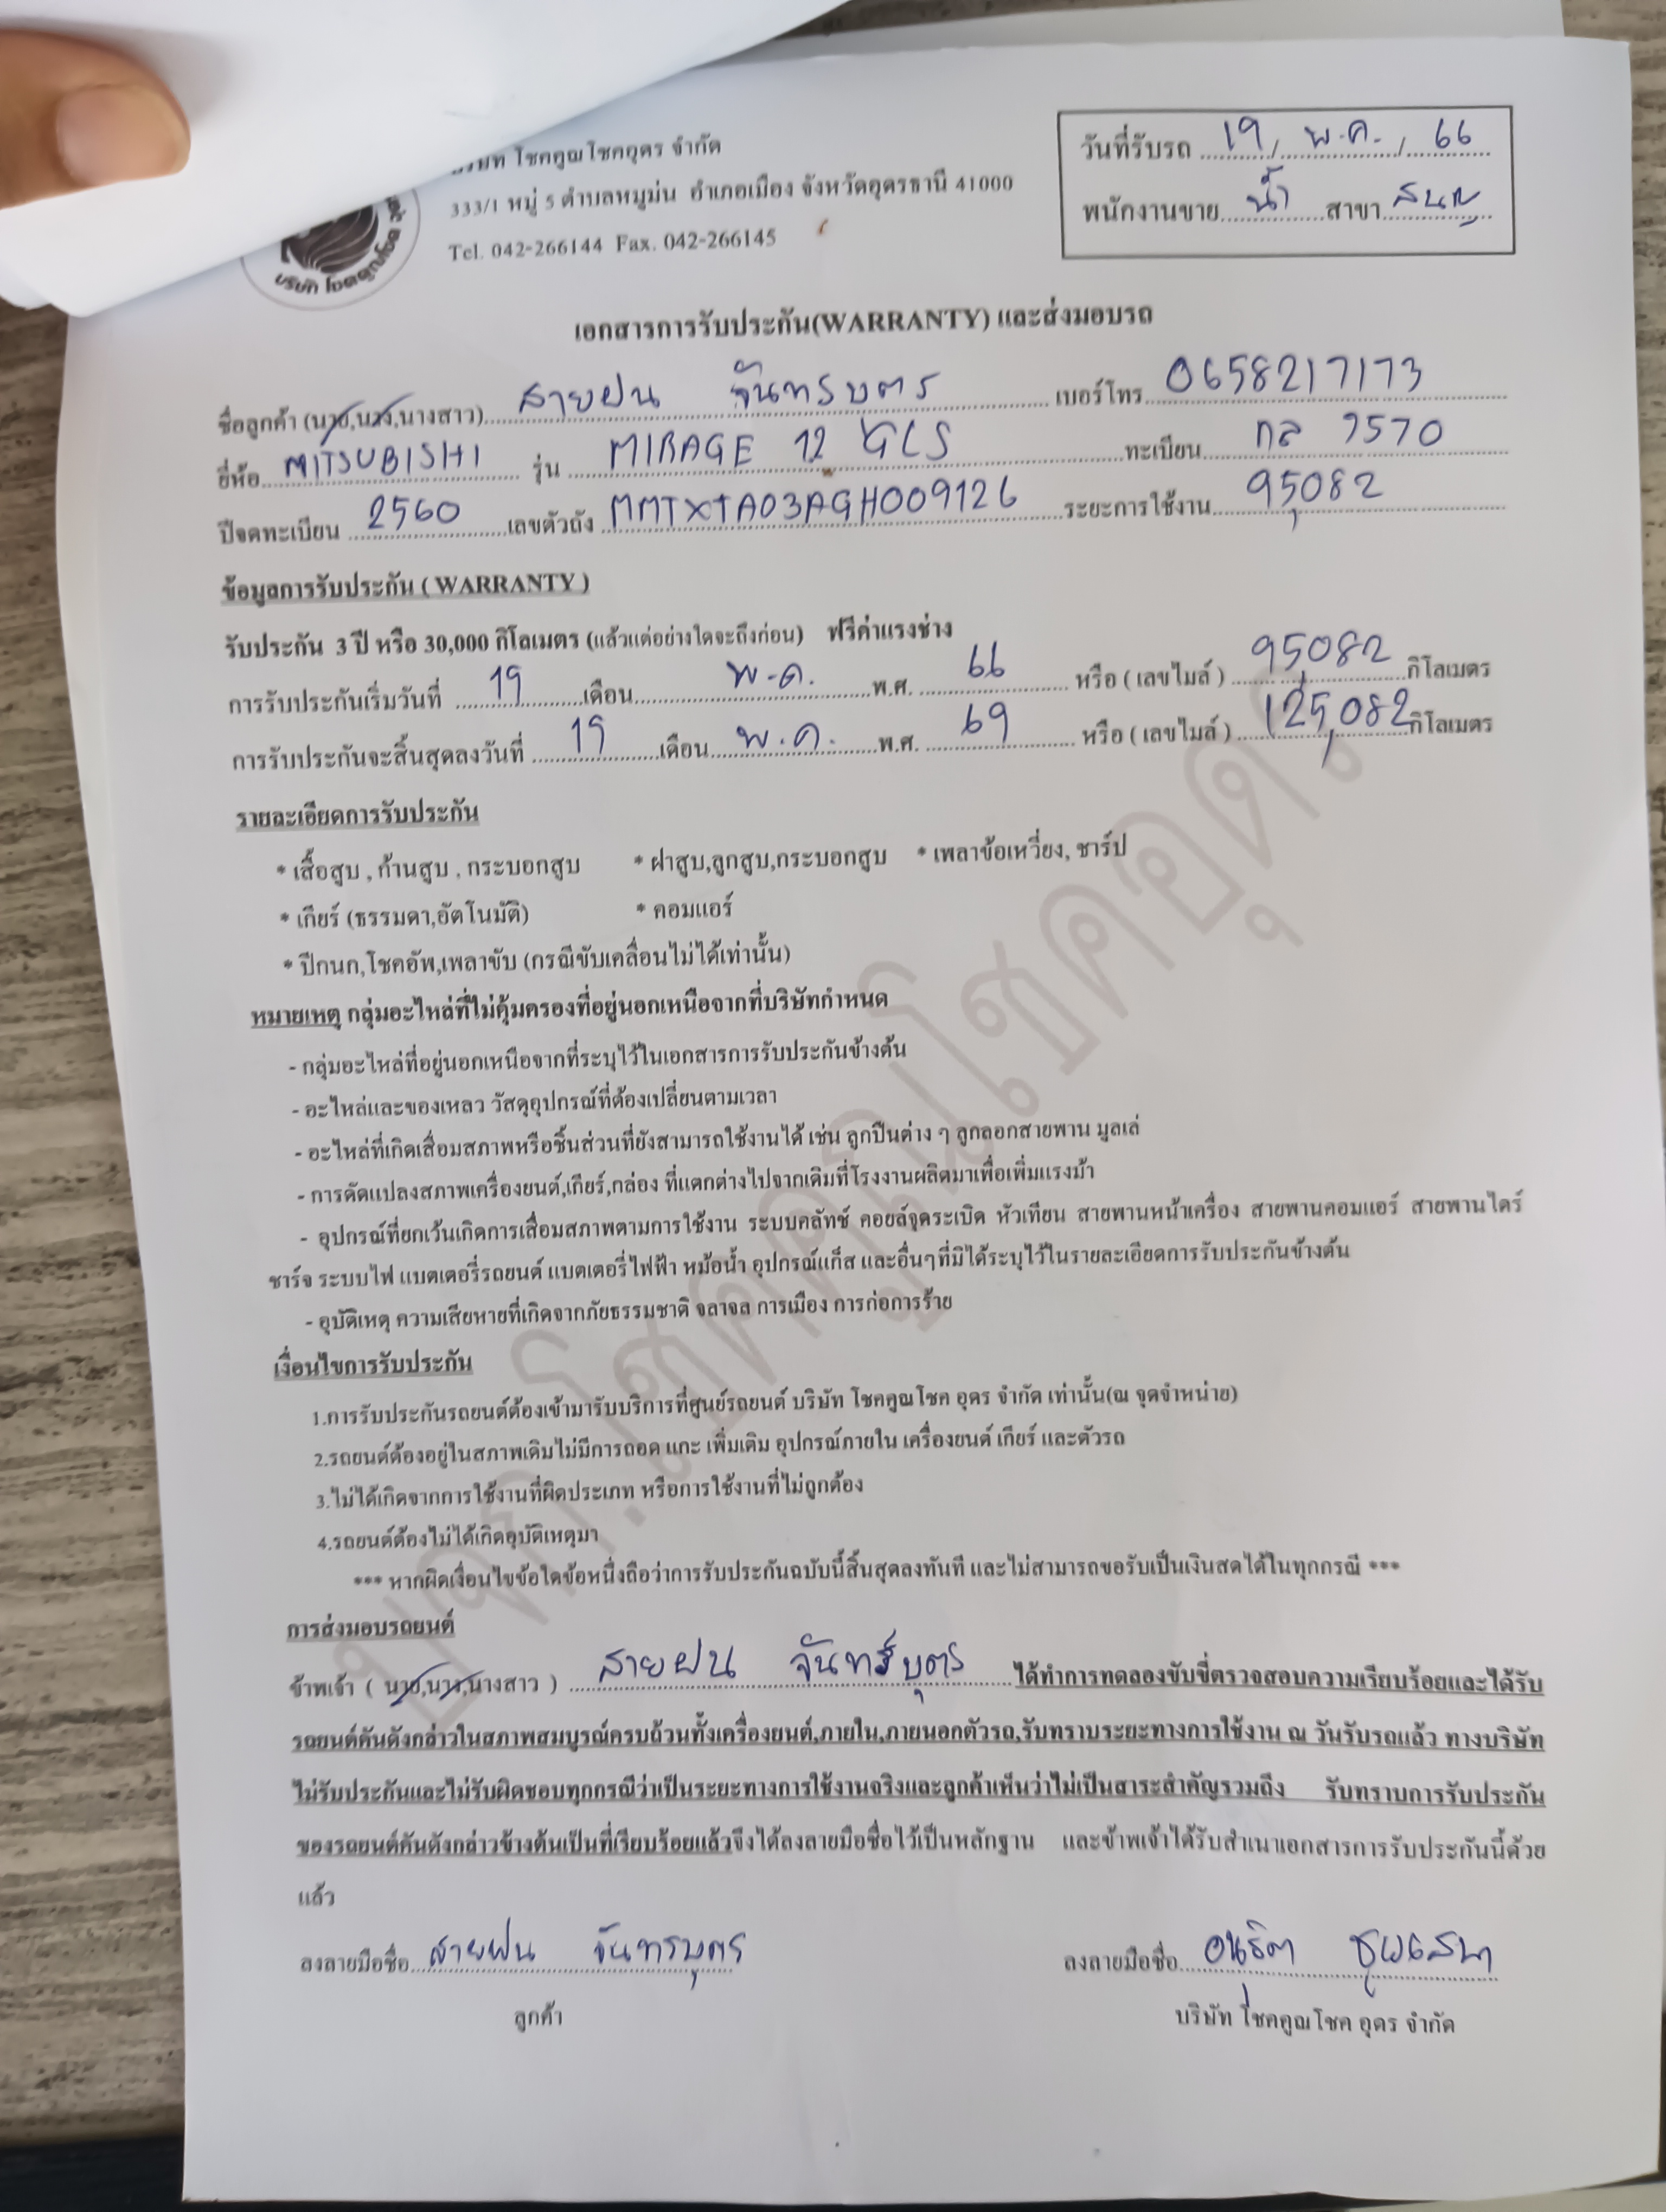 โชคคูณโชคอุดร จำกัด
333/1 หมู่ 5 ตำบลหมูม่น อำเภอเมือง จังหวัดอุดรธานี 41000
Tel. 042-266144 Fax. 042-266145
บริษัท โชคคูณโชค
วันที่รับรถ 19 / พ.ค. / 66
พนักงานขาย น้ำ สาขา
เอกสารการรับประกัน(WARRANTY) และส่งมอบรถ
ชื่อลูกค้า (นาย,นาง,นางสาว) สายฝน จันทรบุตร เบอร์โทร 0658217173
ยี่ห้อ MITSUBISHI รุ่น MIRAGE 12 GLS ทะเบียน กล 7570
ปีจดทะเบียน 2560 เลขตัวถัง MMTXTA03AGH009126 ระยะการใช้งาน 95,082
ข้อมูลการรับประกัน ( WARRANTY )
รับประกัน 3 ปี หรือ 30,000 กิโลเมตร (แล้วแต่อย่างใดจะถึงก่อน) ฟรีค่าแรงช่าง
การรับประกันเริ่มวันที่ 19 เดือน พ.ค. พ.ศ. 66 หรือ ( เลขไมล์ ) 95,082 กิโลเมตร
การรับประกันจะสิ้นสุดลงวันที่ 19 เดือน พ.ค. พ.ศ. 69 หรือ ( เลขไมล์ ) 125,082 กิโลเมตร
รายละเอียดการรับประกัน
* เสื้อสูบ , ก้านสูบ , กระบอกสูบ * ฝาสูบ,ลูกสูบ,กระบอกสูบ * เพลาข้อเหวี่ยง, ชาร์ป
* เกียร์ (ธรรมดา,อัตโนมัติ) * คอมแอร์
* ปีกนก,โชคอัพ,เพลาขับ (กรณีขับเคลื่อนไม่ได้เท่านั้น)
หมายเหตุ กลุ่มอะไหล่ที่ไม่คุ้มครองที่อยู่นอกเหนือจากที่บริษัทกำหนด
- กลุ่มอะไหล่ที่อยู่นอกเหนือจากที่ระบุไว้ในเอกสารการรับประกันข้างต้น
- อะไหล่และของเหลว วัสดุอุปกรณ์ที่ต้องเปลี่ยนตามเวลา
- อะไหล่ที่เกิดเสื่อมสภาพหรือชิ้นส่วนที่ยังสามารถใช้งานได้ เช่น ลูกปืนต่าง ๆ ลูกลอกสายพาน มูลเล่
- การดัดแปลงสภาพเครื่องยนต์,เกียร์,กล่อง ที่แตกต่างไปจากเดิมที่โรงงานผลิตมาเพื่อเพิ่มแรงม้า
- อุปกรณ์ที่ยกเว้นเกิดการเสื่อมสภาพตามการใช้งาน ระบบคลัทช์ คอยล์จุดระเบิด หัวเทียน สายพานหน้าเครื่อง สายพานคอมแอร์ สายพานไดร์
ชาร์จ ระบบไฟ แบตเตอรี่รถยนต์ แบตเตอรี่ไฟฟ้า หม้อน้ำ อุปกรณ์แก็ส และอื่นๆที่มิได้ระบุไว้ในรายละเอียดการรับประกันข้างต้น
- อุบัติเหตุ ความเสียหายที่เกิดจากภัยธรรมชาติ จลาจล การเมือง การก่อการร้าย
เงื่อนไขการรับประกัน
1.การรับประกันรถยนต์ต้องเข้ามารับบริการที่ศูนย์รถยนต์ บริษัท โชคคูณโชค อุดร จำกัด เท่านั้น(ณ จุดจำหน่าย)
2.รถยนต์ต้องอยู่ในสภาพเดิมไม่มีการถอด แกะ เพิ่มเติม อุปกรณ์ภายใน เครื่องยนต์ เกียร์ และตัวรถ
3.ไม่ได้เกิดจากการใช้งานที่ผิดประเภท หรือการใช้งานที่ไม่ถูกต้อง
4.รถยนต์ต้องไม่ได้เกิดอุบัติเหตุมา
*** หากผิดเงื่อนไขข้อใดข้อหนึ่งถือว่าการรับประกันฉบับนี้สิ้นสุดลงทันที และไม่สามารถขอรับเป็นเงินสดได้ในทุกกรณี ***
การส่งมอบรถยนต์
ข้าพเจ้า ( นาย,นาง,นางสาว ) สายฝน จันทร์บุตร ได้ทำการทดลองขับขี่ตรวจสอบความเรียบร้อยและได้รับ
รถยนต์คันดังกล่าวในสภาพสมบูรณ์ครบถ้วนทั้งเครื่องยนต์,ภายใน,ภายนอกตัวรถ,รับทราบระยะทางการใช้งาน ณ วันรับรถแล้ว ทางบริษัท
ไม่รับประกันและไม่รับผิดชอบทุกกรณีว่าเป็นระยะทางการใช้งานจริงและลูกค้าเห็นว่าไม่เป็นสาระสำคัญรวมถึง รับทราบการรับประกัน
ของรถยนต์คันดังกล่าวข้างต้นเป็นที่เรียบร้อยแล้วจึงได้ลงลายมือชื่อไว้เป็นหลักฐาน และข้าพเจ้าได้รับสำเนาเอกสารการรับประกันนี้ด้วย
แล้ว
ลงลายมือชื่อ สายฝน จันทรบุตร ลงลายมือชื่อ
ลูกค้า บริษัท โชคคูณโชค อุดร จำกัด